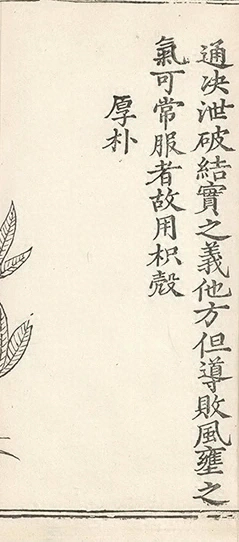 通决泄破結實之義他方但導敗風壅之
氣可常服者故用枳殼
厚朴